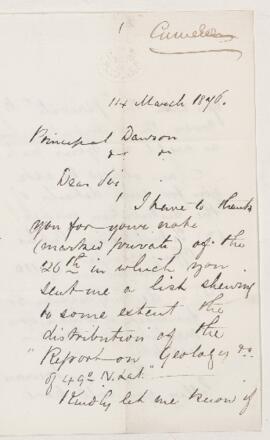 14 March 1876.
Principal Dawson
Dear Sir
I have to thank
you for your note
(marked private) of the
26th in which you
sent me a list shewing
to some extent the
distribution of the
"Report on Geology &c
of 49º N. Lat."
Kindly let me know if